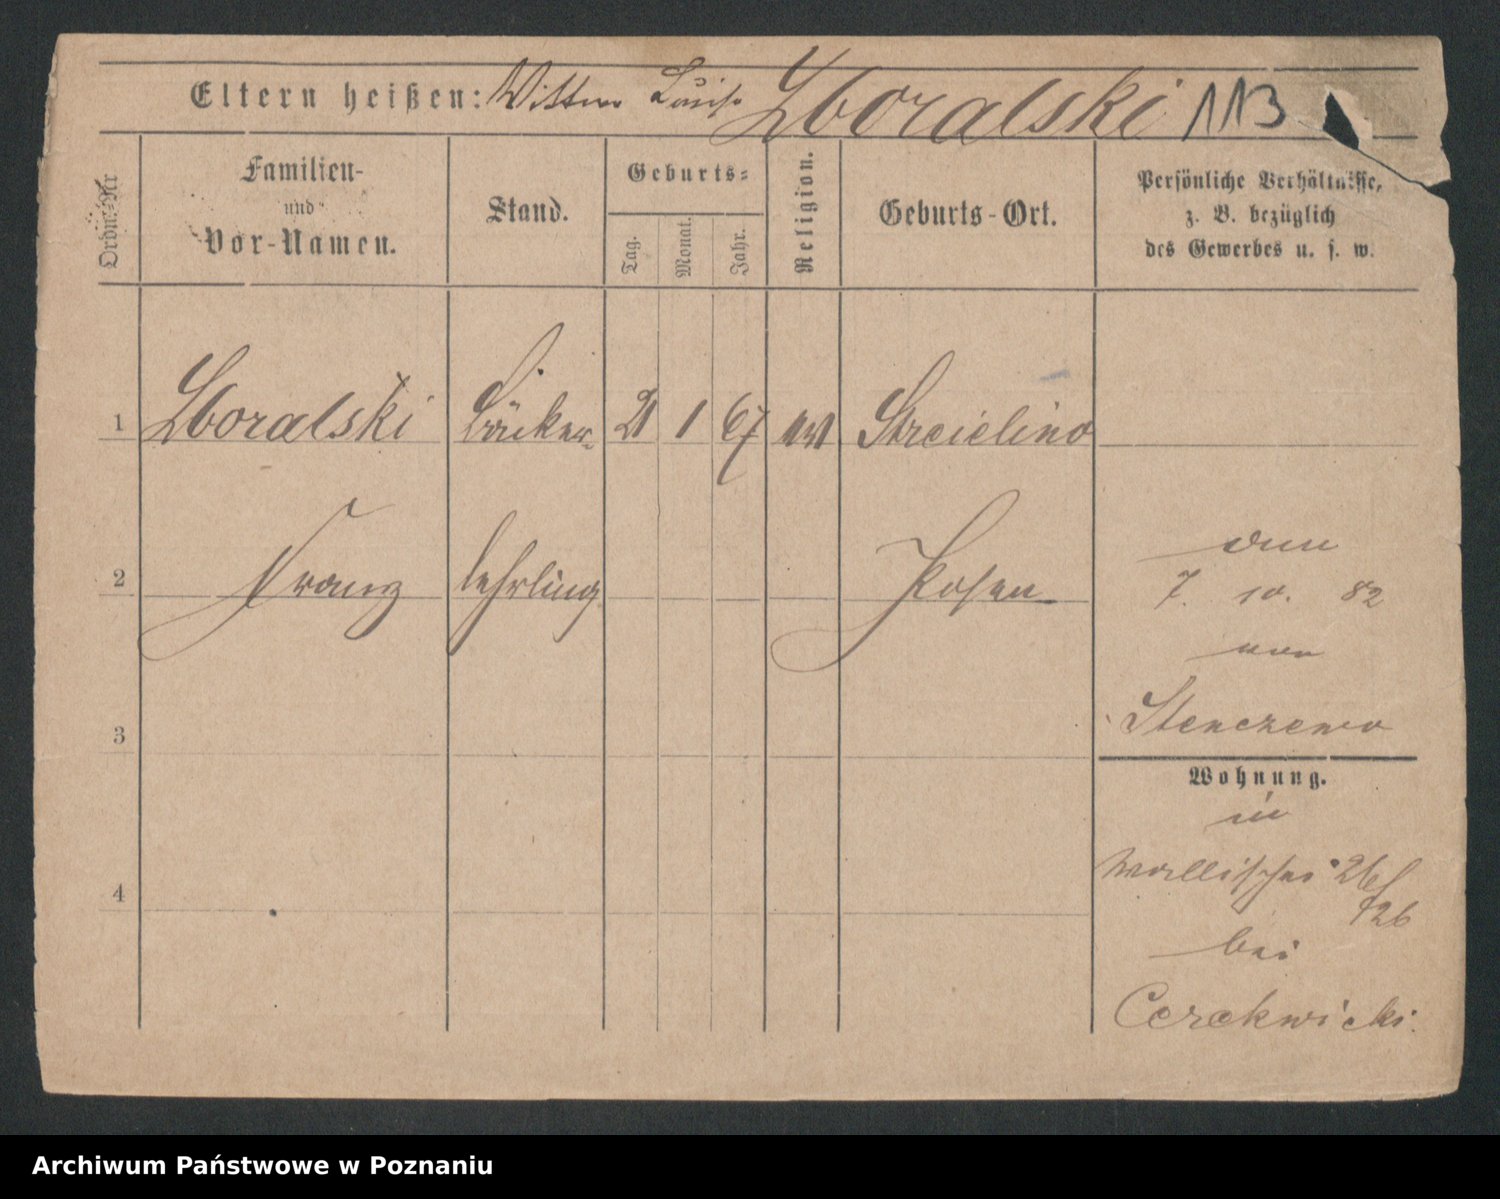 Eltern heißen: Wittwe Luise Zboralski 113
Ordn.-Nr
Familien-
und
Vor-Namen.
Stand.
Geburts-
Tag.
Monat.
Jahr.
Religion.
Geburts-Ort.
Persönliche Verhältnisse,
z. B. bezüglich
des Gewerbes u. s. w.
1 Zboralski Bäcker- 21 1 67 Streielino
2 Franz lehrling Kosen
den
7. 10. 82
von
Stenczewo
3
Wohnung.
in
Wallischei
4
bei
Cerekwicki
Archiwum Państwowe w Poznaniu